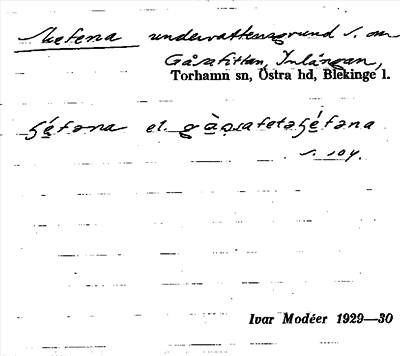 Skefena undervattensgrund s. om
Gåsafittan, Inlängan,
Torhamn sn, Östra hd, Blekinge l.
ʂéfəna el. gàsafetəʂéfəna
s. 104.
Ivar Modéer 1929—30